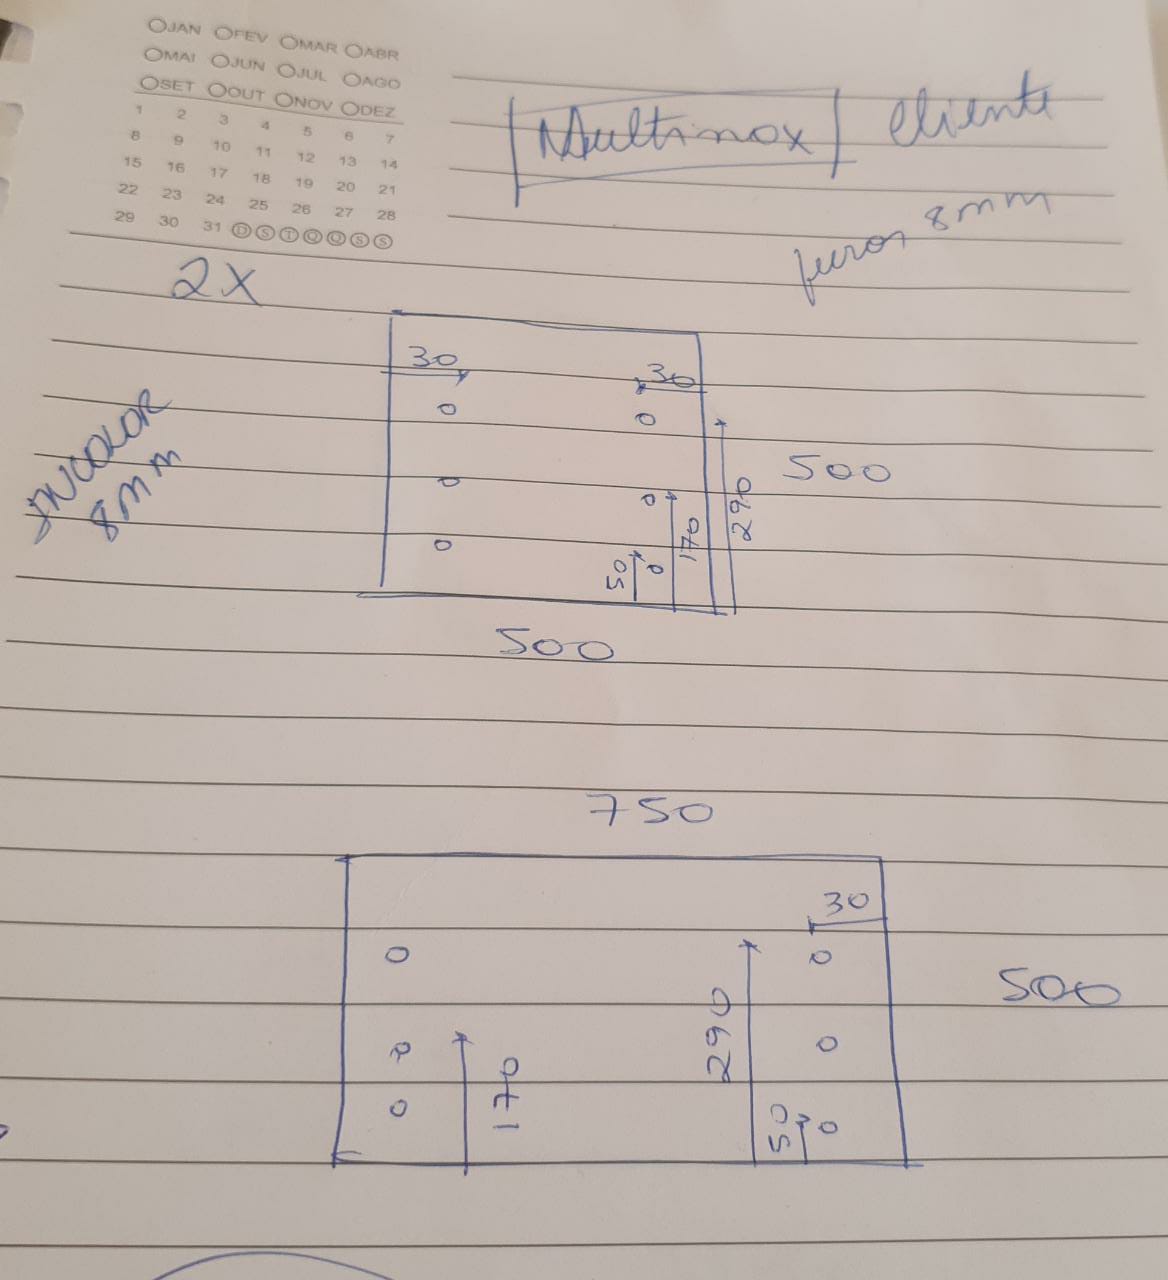 JAN FEV MAR ABR
MAI JUN JUL AGO
SET OUT NOV DEZ
1 2 3 4 5 6 7
8 9 10 11 12 13 14
15 16 17 18 19 20 21
22 23 24 25 26 27 28
29 30 31 D S T Q Q S S
Multinox cliente
furos 8mm
2X
INCOLOR
8mm
30
30
500
290
170
50
500
750
30
500
290
170
50